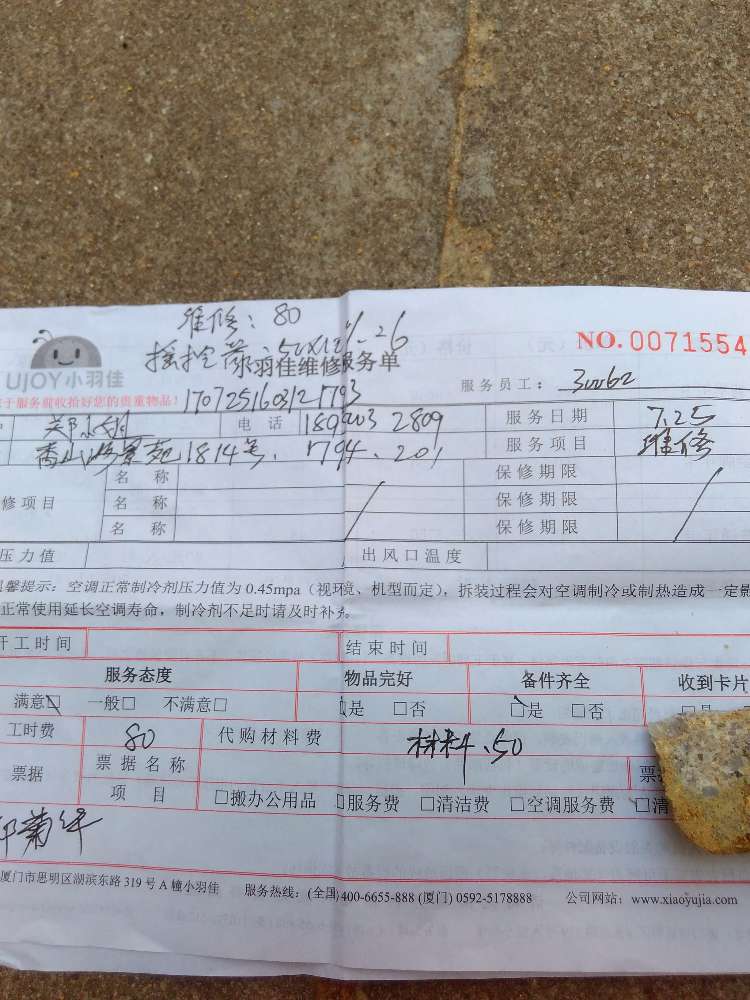 维修：80
UJOY小羽佳
羽佳维修服务单
NO.0071554
服务员工：30062
于服务前收拾好您的贵重物品！
电话 2809 服务日期 7.25
1814号 201 服务项目 维修
修项目 名称 保修期限
名称 保修期限
名称 保修期限
压力值 出风口温度
温馨提示：空调正常制冷剂压力值为0.45mpa（视环境、机型而定），拆装过程会对空调制冷或制热造成一定影
正常使用延长空调寿命，制冷剂不足时请及时补充
开工时间 结束时间
服务态度 物品完好 备件齐全 收到卡片
满意□ 一般□ 不满意□ □是 □否 □是 □否 □是
工时费 80 代购材料费 材料、50
票据 票据名称 票
项目 □搬办公用品 □服务费 □清洁费 □空调服务费 □清
厦门市思明区湖滨东路319号A幢小羽佳 服务热线：(全国)400-6655-888 (厦门) 0592-5178888 公司网站：www.xiaoyujia.com